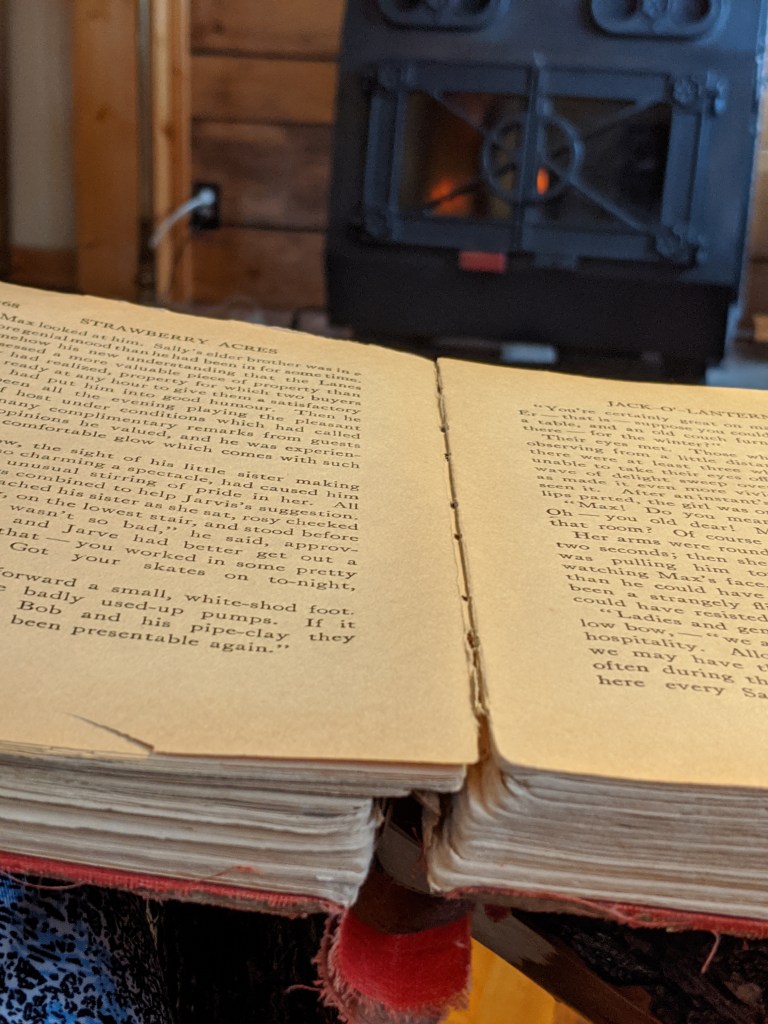 68 STRAWBERRY ACRES
Max looked at him. Sally's elder brother was in a
ore genial mood than he had been in for some time.
mehow his new understanding that the Lanes
sessed a more valuable piece of property than
had realized, property for which two buyers
ready at any hour to give them a satisfactory
had put him into good humour. Then he
been all the evening playing the pleasant
host under conditions which had called
many complimentary remarks from guests
opinions he valued, and he was experien-
comfortable glow which comes with such
ow, the sight of his little sister making
so charming a spectacle, had caused him
unusual stirring of pride in her. All
s combined to help Jarvis's suggestion.
ached his sister as she sat, rosy cheeked
, on the lowest stair, and stood before
wasn't so bad," he said, approv-
and Jarve had better get out a
that — you worked in some pretty
Got your skates on to-night,
forward a small, white-shod foot.
e badly used-up pumps. If it
Bob and his pipe-clay they
been presentable again."
JACK-O'-LANTERN
"You're certainly great on ma
gr — that is — suppose you could
a table, and an old couch
there — for the winter
Their eyes met. Those w
observing from a little distan
there was at least three
unable to take their eyes off
wave of delight sweep
as made it even more vivi
seen it. After an instant's
lips parted, the girl was on
"Max! Do you mean
Oh — you old dear! M
that room? Of course
Her arms were round
two seconds; then she
was pulling him to
watching Max's face.
than he could have
been a strangely fl
could have resisted
"Ladies and gen
low bow, — "we a
hospitality. Allo
we may have t
often during th
here every Sa